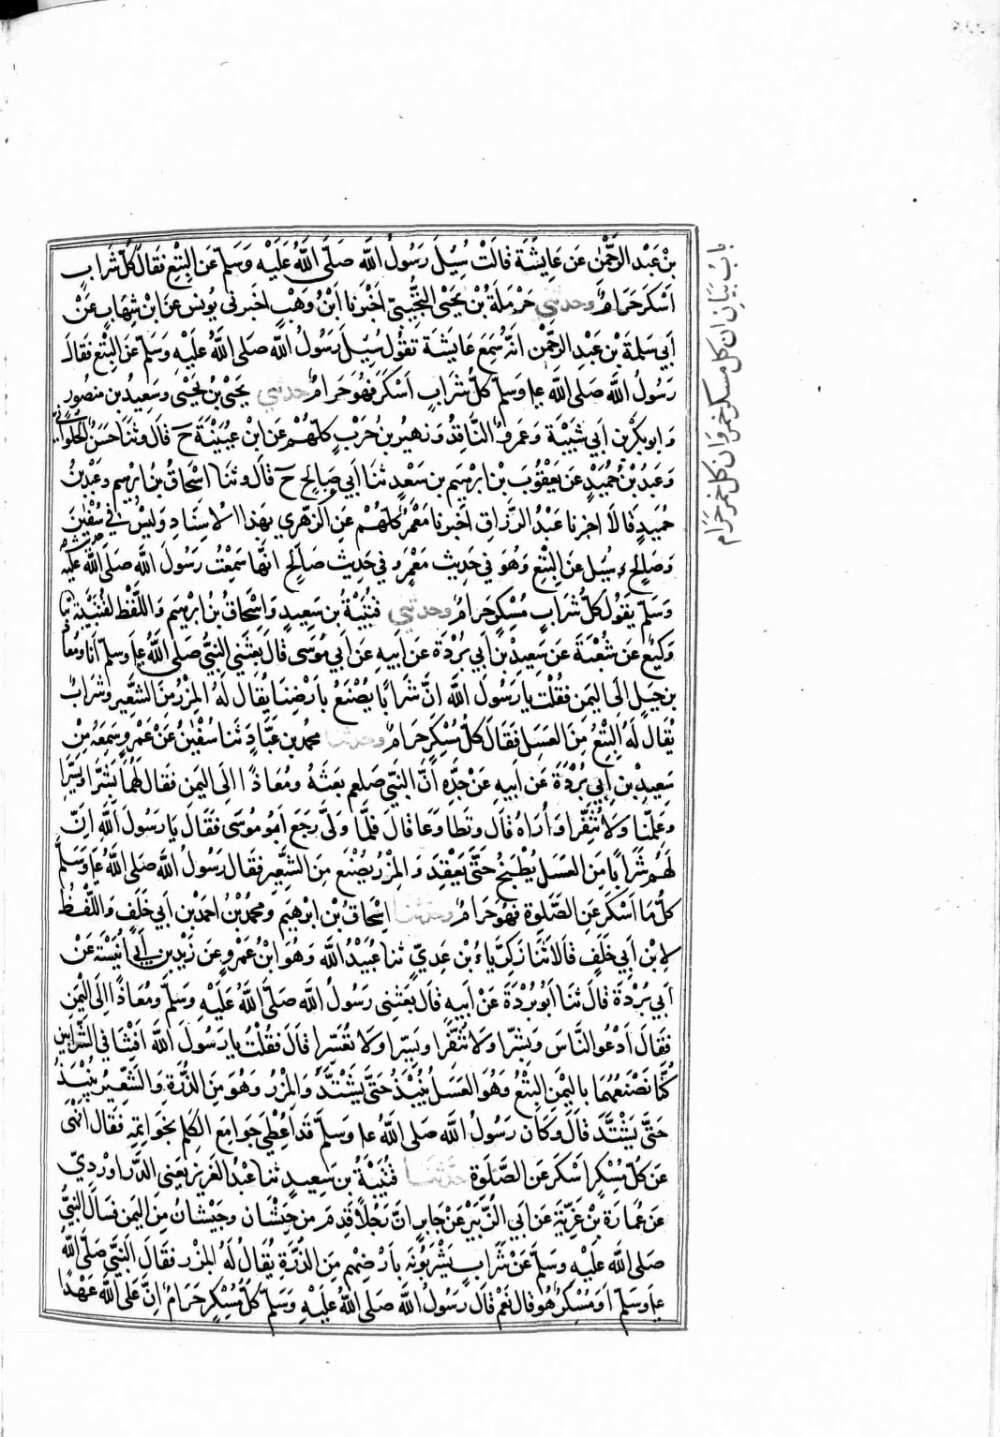 بن عبد الرحمن عن عايشة قالت سيل رسول الله صلى الله عليه وسلم عن البتع فقال كل شراب
اسكر حرام وحدثني حرملة بن يحيى التجيبي اخبرنا ابن وهب اخبرني يونس عن ابن شهاب عن
ابي سلمة بن عبد الرحمن انه سمع عايشة تقول سيل رسول الله صلى الله عليه وسلم عن البتع فقال
رسول الله صلى الله عليه وسلم كل شراب اسكر فهو حرام حدثني يحيى بن يحيى وسعيد بن منصور
وابو بكر بن ابي شيبة وعمرو الناقد وزهير بن حرب كلهم عن ابن عيينة ح قال وثنا حسن الحلواني
وعبد بن حميد عن يعقوب بن ابرهيم بن سعيد ثنا ابي صالح ح قال وثنا اسحاق بن ابرهيم وعبد بن
حميد قالا اخبرنا عبد الرزاق اخبرنا معمر كلهم عن الزهري بهذا الاسناد وليس في سفين
وصالح سيل عن البتع وهو في حديث معمر وفي حديث صالح انها سمعت رسول الله صلى الله عليه
وسلم يقول كل شراب مسكر حرام وحدثني قتيبة بن سعيد واسحاق بن ابرهيم واللفظ لقتيبة ثنا
وكيع عن شعبة عن سعيد بن ابي بردة عن ابيه عن ابي موسى قال بعثني النبي صلى الله عليه وسلم انا ومعاذ
بن جبل الى اليمن فقلت يا رسول الله ان شرابا يصنع بارضنا يقال له المزر من الشعير وشراب
يقال له البتع من العسل فقال كل مسكر حرام وحدثنا محمد بن عباد ثنا سفين عن عمرو سمعه من
سعيد بن ابي بردة عن ابيه عن جده ان النبي صلعم بعثه ومعاذا الى اليمن فقال لهما بشرا ويسرا
وعلمنا ولا تنفرا واراه قال وتطاوعا قال فلما ولى رجع ابو موسى فقال يا رسول الله ان
لهم شرابا من العسل يطبخ حتى يعقد والمزر يصنع من الشعير فقال رسول الله صلى الله عليه وسلم
كل ما اسكر عن الصلوة فهو حرام وحدثنا اسحاق بن ابرهيم ومحمد بن احمد بن ابي خلف واللفظ
لابن ابي خلف قالا ثنا زكرياء بن عدي ثنا عبيد الله وهو ابن عمرو عن زيد بن ابي انيسة عن
ابي بردة قال ثنا ابو بردة عن ابيه قال بعثني رسول الله صلى الله عليه وسلم ومعاذا الى اليمن
فقال ادعوا الناس وبشرا ولا تنفرا ويسرا ولا تعسرا قال فقلت يا رسول الله افتنا في الشرابين
كنا نصنعهما باليمن البتع وهو العسل ينبذ حتى يشتد والمزر وهو من الذرة والشعير ينبذ
حتى يشتد قال وكان رسول الله صلى الله عليه وسلم قد اعطي جوامع الكلم بخواتمه فقال انهى
عن كل مسكر اسكر عن الصلوة حدثنا قتيبة بن سعيد ثنا عبد العزيز يعنى الدراوردي
عن عمارة بن غزية عن ابي الزبير عن جابر ان رجلا قدم من جيشان وجيشان من اليمن فسال النبي
صلى الله عليه وسلم عن شراب يشربونه بارضهم من الذرة يقال له المزر فقال النبي صلى الله
عليه وسلم او مسكر هو قال نعم قال رسول الله صلى الله عليه وسلم كل مسكر حرام ان على الله عهدا
باب بيان ان كل مسكر خمر وان كل خمر حرام